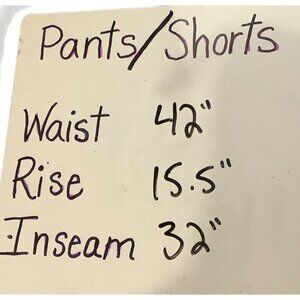 Pants/Shorts
Waist 42"
Rise 15.5"
Inseam 32"